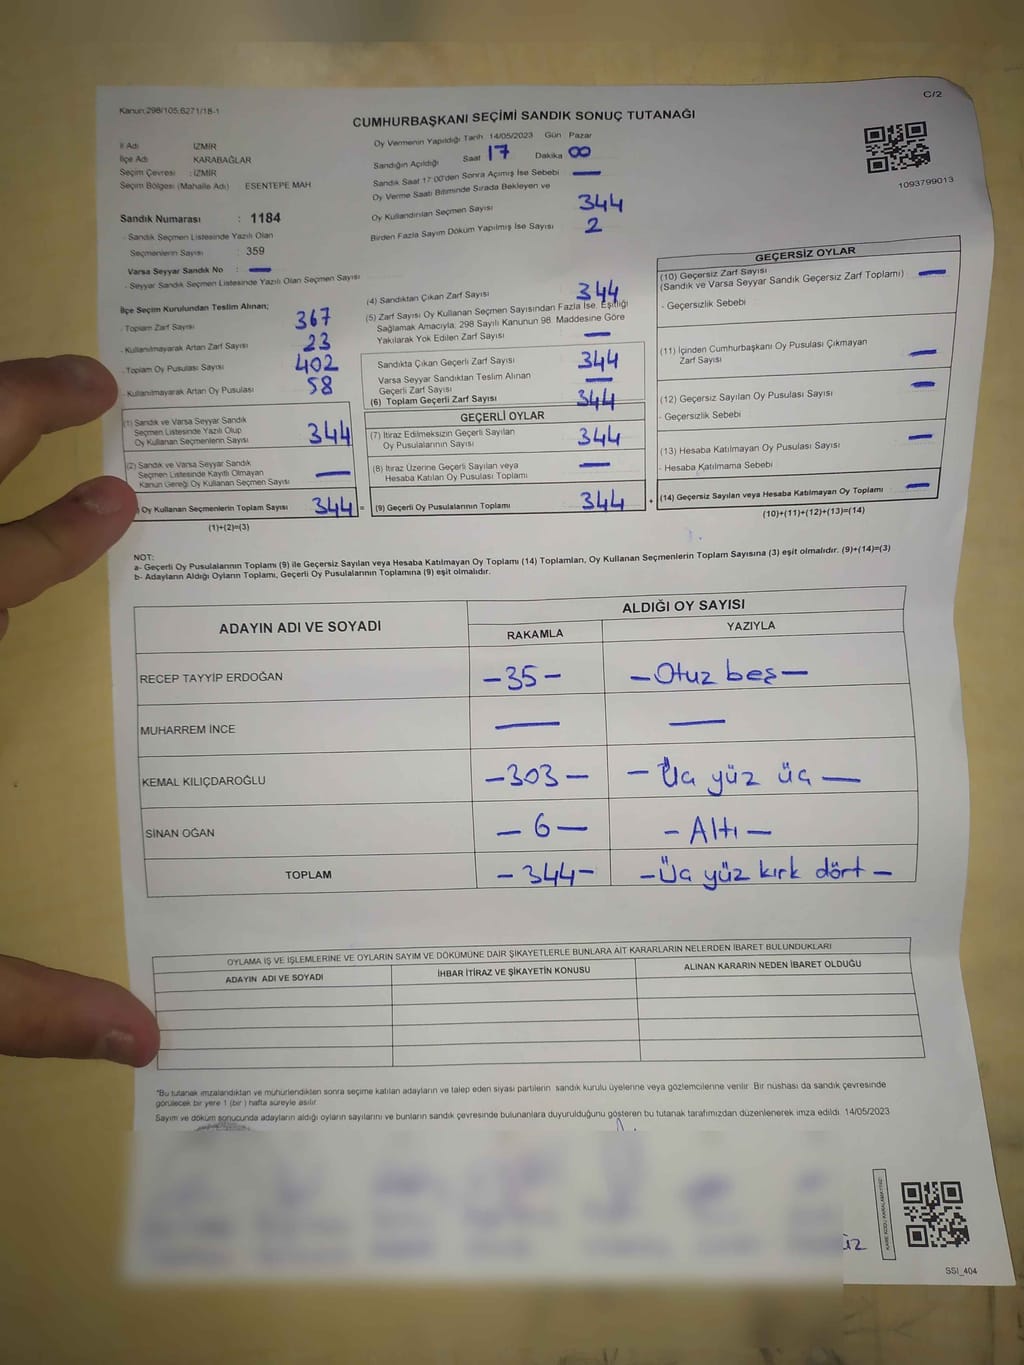 C/2
Kanun:298/105;6271/18-1
CUMHURBAŞKANI SEÇİMİ SANDIK SONUÇ TUTANAĞI
İl Adı İZMİR
İlçe Adı KARABAĞLAR
Seçim Çevresi : İZMİR
Seçim Bölgesi (Mahalle Adı) ESENTEPE MAH
Sandık Numarası : 1184
- Sandık Seçmen Listesinde Yazılı Olan
Seçmenlerin Sayısı : 359
Varsa Seyyar Sandık No : —
- Seyyar Sandık Seçmen Listesinde Yazılı Olan Seçmen Sayısı
Oy Vermenin Yapıldığı Tarih 14/05/2023 Gün Pazar
Sandığın Açıldığı Saat 17 Dakika 00
Sandık Saat 17:00'den Sonra Açılmış İse Sebebi —
Oy Verme Saati Bitiminde Sırada Bekleyen ve
Oy Kullandırılan Seçmen Sayısı 344
Birden Fazla Sayım Döküm Yapılmış İse Sayısı 2
1093799013
İlçe Seçim Kurulundan Teslim Alınan;
- Toplam Zarf Sayısı 367
- Kullanılmayarak Artan Zarf Sayısı 23
- Toplam Oy Pusulası Sayısı 402
- Kullanılmayarak Artan Oy Pusulası 58
(1) Sandık ve Varsa Seyyar Sandık
Seçmen Listesinde Yazılı Olup
Oy Kullanan Seçmenlerin Sayısı 344
(2) Sandık ve Varsa Seyyar Sandık
Seçmen Listesinde Kayıtlı Olmayan
Kanun Gereği Oy Kullanan Seçmen Sayısı —
) Oy Kullanan Seçmenlerin Toplam Sayısı 344 =
(1)+(2)=(3)
(4) Sandıktan Çıkan Zarf Sayısı 344
(5) Zarf Sayısı Oy Kullanan Seçmen Sayısından Fazla İse, Eşitliği
Sağlamak Amacıyla; 298 Sayılı Kanunun 98. Maddesine Göre
Yakılarak Yok Edilen Zarf Sayısı —
Sandıkta Çıkan Geçerli Zarf Sayısı 344
Varsa Seyyar Sandıktan Teslim Alınan
Geçerli Zarf Sayısı —
(6) Toplam Geçerli Zarf Sayısı 344
GEÇERLİ OYLAR
(7) İtiraz Edilmeksizin Geçerli Sayılan
Oy Pusulalarının Sayısı 344
(8) İtiraz Üzerine Geçerli Sayılan veya
Hesaba Katılan Oy Pusulası Toplamı —
(9) Geçerli Oy Pusulalarının Toplamı 344 +
GEÇERSİZ OYLAR
(10) Geçersiz Zarf Sayısı
(Sandık ve Varsa Seyyar Sandık Geçersiz Zarf Toplamı) —
- Geçersizlik Sebebi
(11) İçinden Cumhurbaşkanı Oy Pusulası Çıkmayan
Zarf Sayısı —
(12) Geçersiz Sayılan Oy Pusulası Sayısı —
- Geçersizlik Sebebi
(13) Hesaba Katılmayan Oy Pusulası Sayısı —
- Hesaba Katılmama Sebebi
(14) Geçersiz Sayılan veya Hesaba Katılmayan Oy Toplamı —
(10)+(11)+(12)+(13)=(14)
NOT:
a- Geçerli Oy Pusulalarının Toplamı (9) ile Geçersiz Sayılan veya Hesaba Katılmayan Oy Toplamı (14) Toplamları, Oy Kullanan Seçmenlerin Toplam Sayısına (3) eşit olmalıdır. (9)+(14)=(3)
b- Adayların Aldığı Oyların Toplamı, Geçerli Oy Pusulalarının Toplamına (9) eşit olmalıdır.
ADAYIN ADI VE SOYADI ALDIĞI OY SAYISI
RAKAMLA YAZIYLA
RECEP TAYYİP ERDOĞAN —35— —Otuz beş—
MUHARREM İNCE — —
KEMAL KILIÇDAROĞLU —303— —Üç yüz üç—
SİNAN OĞAN —6— —Altı—
TOPLAM —344— —Üç yüz kırk dört—
OYLAMA İŞ VE İŞLEMLERİNE VE OYLARIN SAYIM VE DÖKÜMÜNE DAİR ŞİKAYETLERLE BUNLARA AİT KARARLARIN NELERDEN İBARET BULUNDUKLARI
ADAYIN ADI VE SOYADI İHBAR İTİRAZ VE ŞİKAYETİN KONUSU ALINAN KARARIN NEDEN İBARET OLDUĞU
"Bu tutanak imzalandıktan ve mühürlendikten sonra seçime katılan adayların ve talep eden siyasi partilerin sandık kurulu üyelerine veya gözlemcilerine verilir. Bir nüshası da sandık çevresinde
görülecek bir yere 1 (bir ) hafta süreyle asılır
Sayım ve döküm sonucunda adayların aldığı oyların sayılarını ve bunların sandık çevresinde bulunanlara duyurulduğunu gösteren bu tutanak tarafımızdan düzenlenerek imza edildi. 14/05/2023
SSI_404